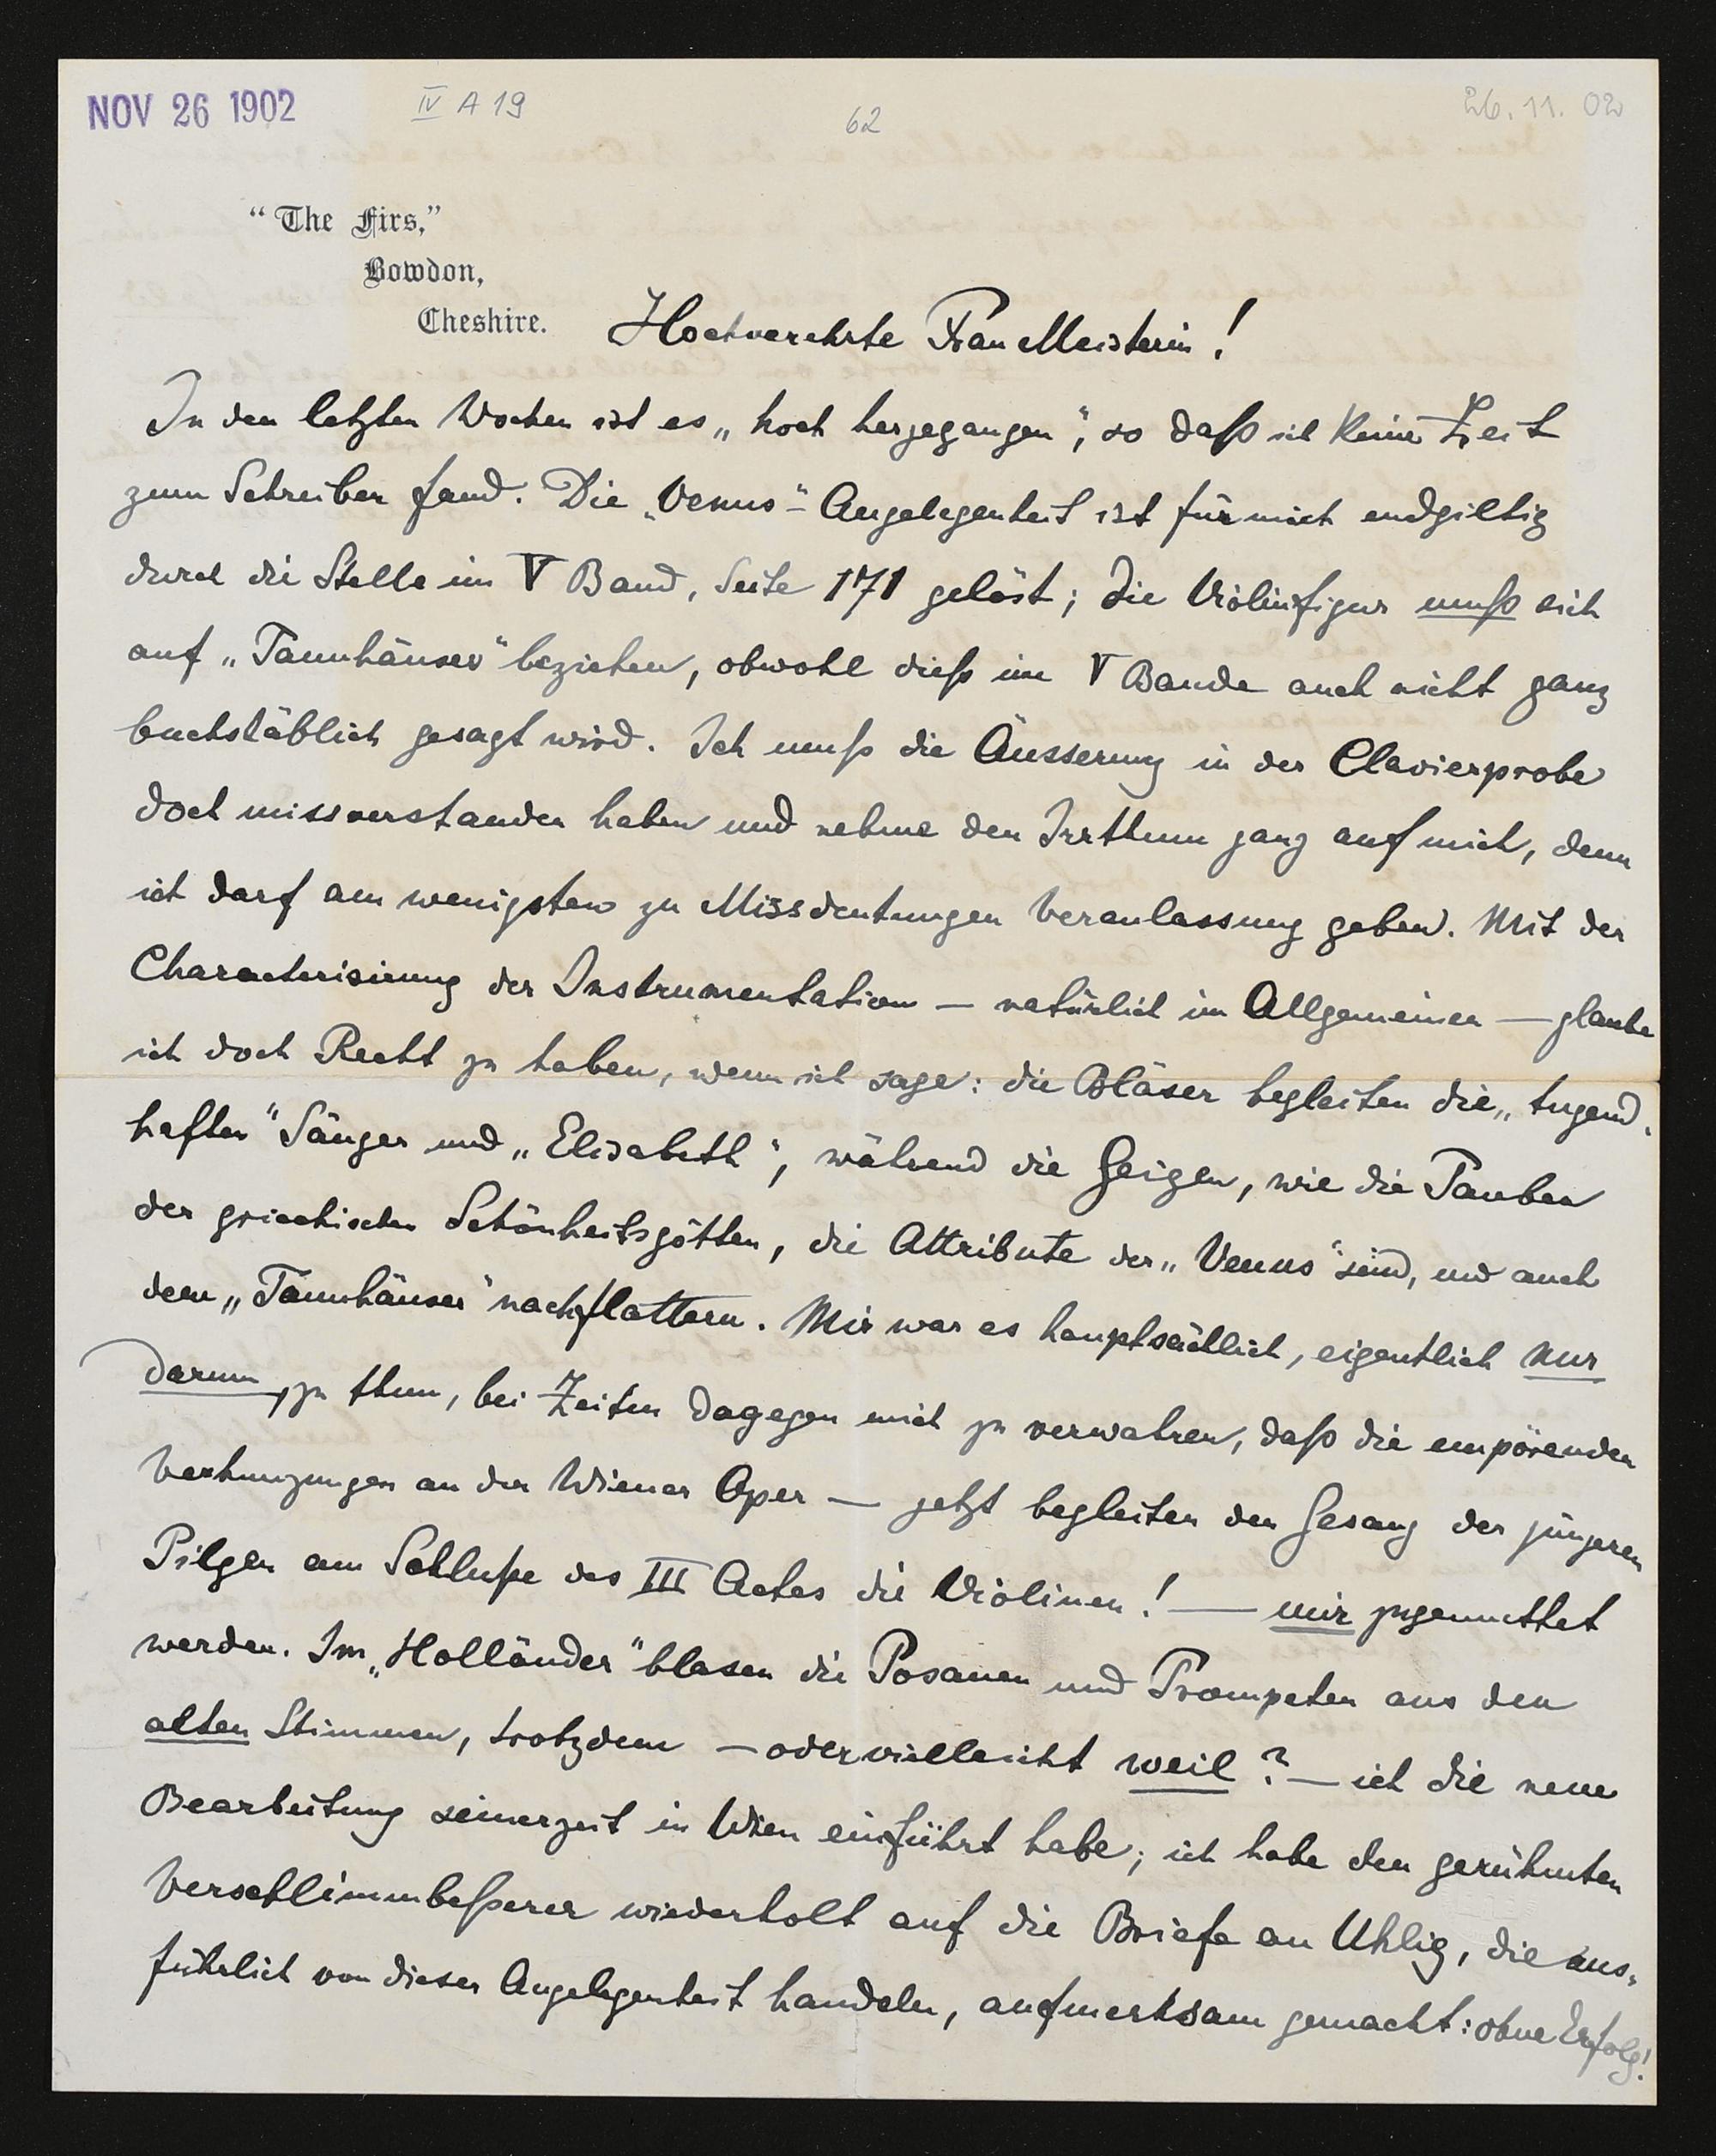 NOV 26 1902
IV A 19
62
26. 11. 02
“The Firs,”
Bowdon,
Cheshire.
Hochverehrte Frau Meisterin!
In den letzten Wochen ist es „hoch hergegangen“, so daß ich keine Zeit
zum Schreiben fand. Die „Venus“-Angelegenheit ist für mich endgiltig
durch die Stelle im V Band, Seite 171 gelöst; die Violinfigur muß sich
auf „Tannhäuser“ beziehen, obwohl dieß im V Bande auch nicht ganz
buchstäblich gesagt wird. Ich muß die Äusserung in der Clavierprobe
doch missverstanden haben und nehme den Irrthum ganz auf mich, denn
ich darf am wenigsten zu Missdeutungen Veranlassung geben. Mit der
Characterisirung der Instrumentation — natürlich im Allgemeinen — glaube
ich doch Recht zu haben, wenn ich sage: die Bläser begleiten die „tugend-
haften“ Sänger und „Elisabeth“, während die Geigen, wie die Tauben
der griechischen Schönheitsgöttin, die Attribute der „Venus“ sind, und auch
dem „Tannhäuser“ nachflattern. Mir war es hauptsächlich, eigentlich nur
darum, zu thun, bei Zeiten dagegen mich zu verwahren, daß die empörenden
Verhunzungen an der Wiener Oper — jetzt begleiten den Gesang der jüngeren
Pilger am Schluße des III Actes die Violinen! — mir zugemuthet
werden. Im „Holländer“ blasen die Posaunen und Trompeten aus den
alten Stimmen, trotzdem — oder vielleicht weil? — ich die neue
Bearbeitung seinerzeit in Wien einführt habe; ich habe den gerühmten
Verschlimmbeßerer wiederholt auf die Briefe an Uhlig, die aus-
führlich von dieser Angelegenheit handeln, aufmerksam gemacht: ohne Erfolg!